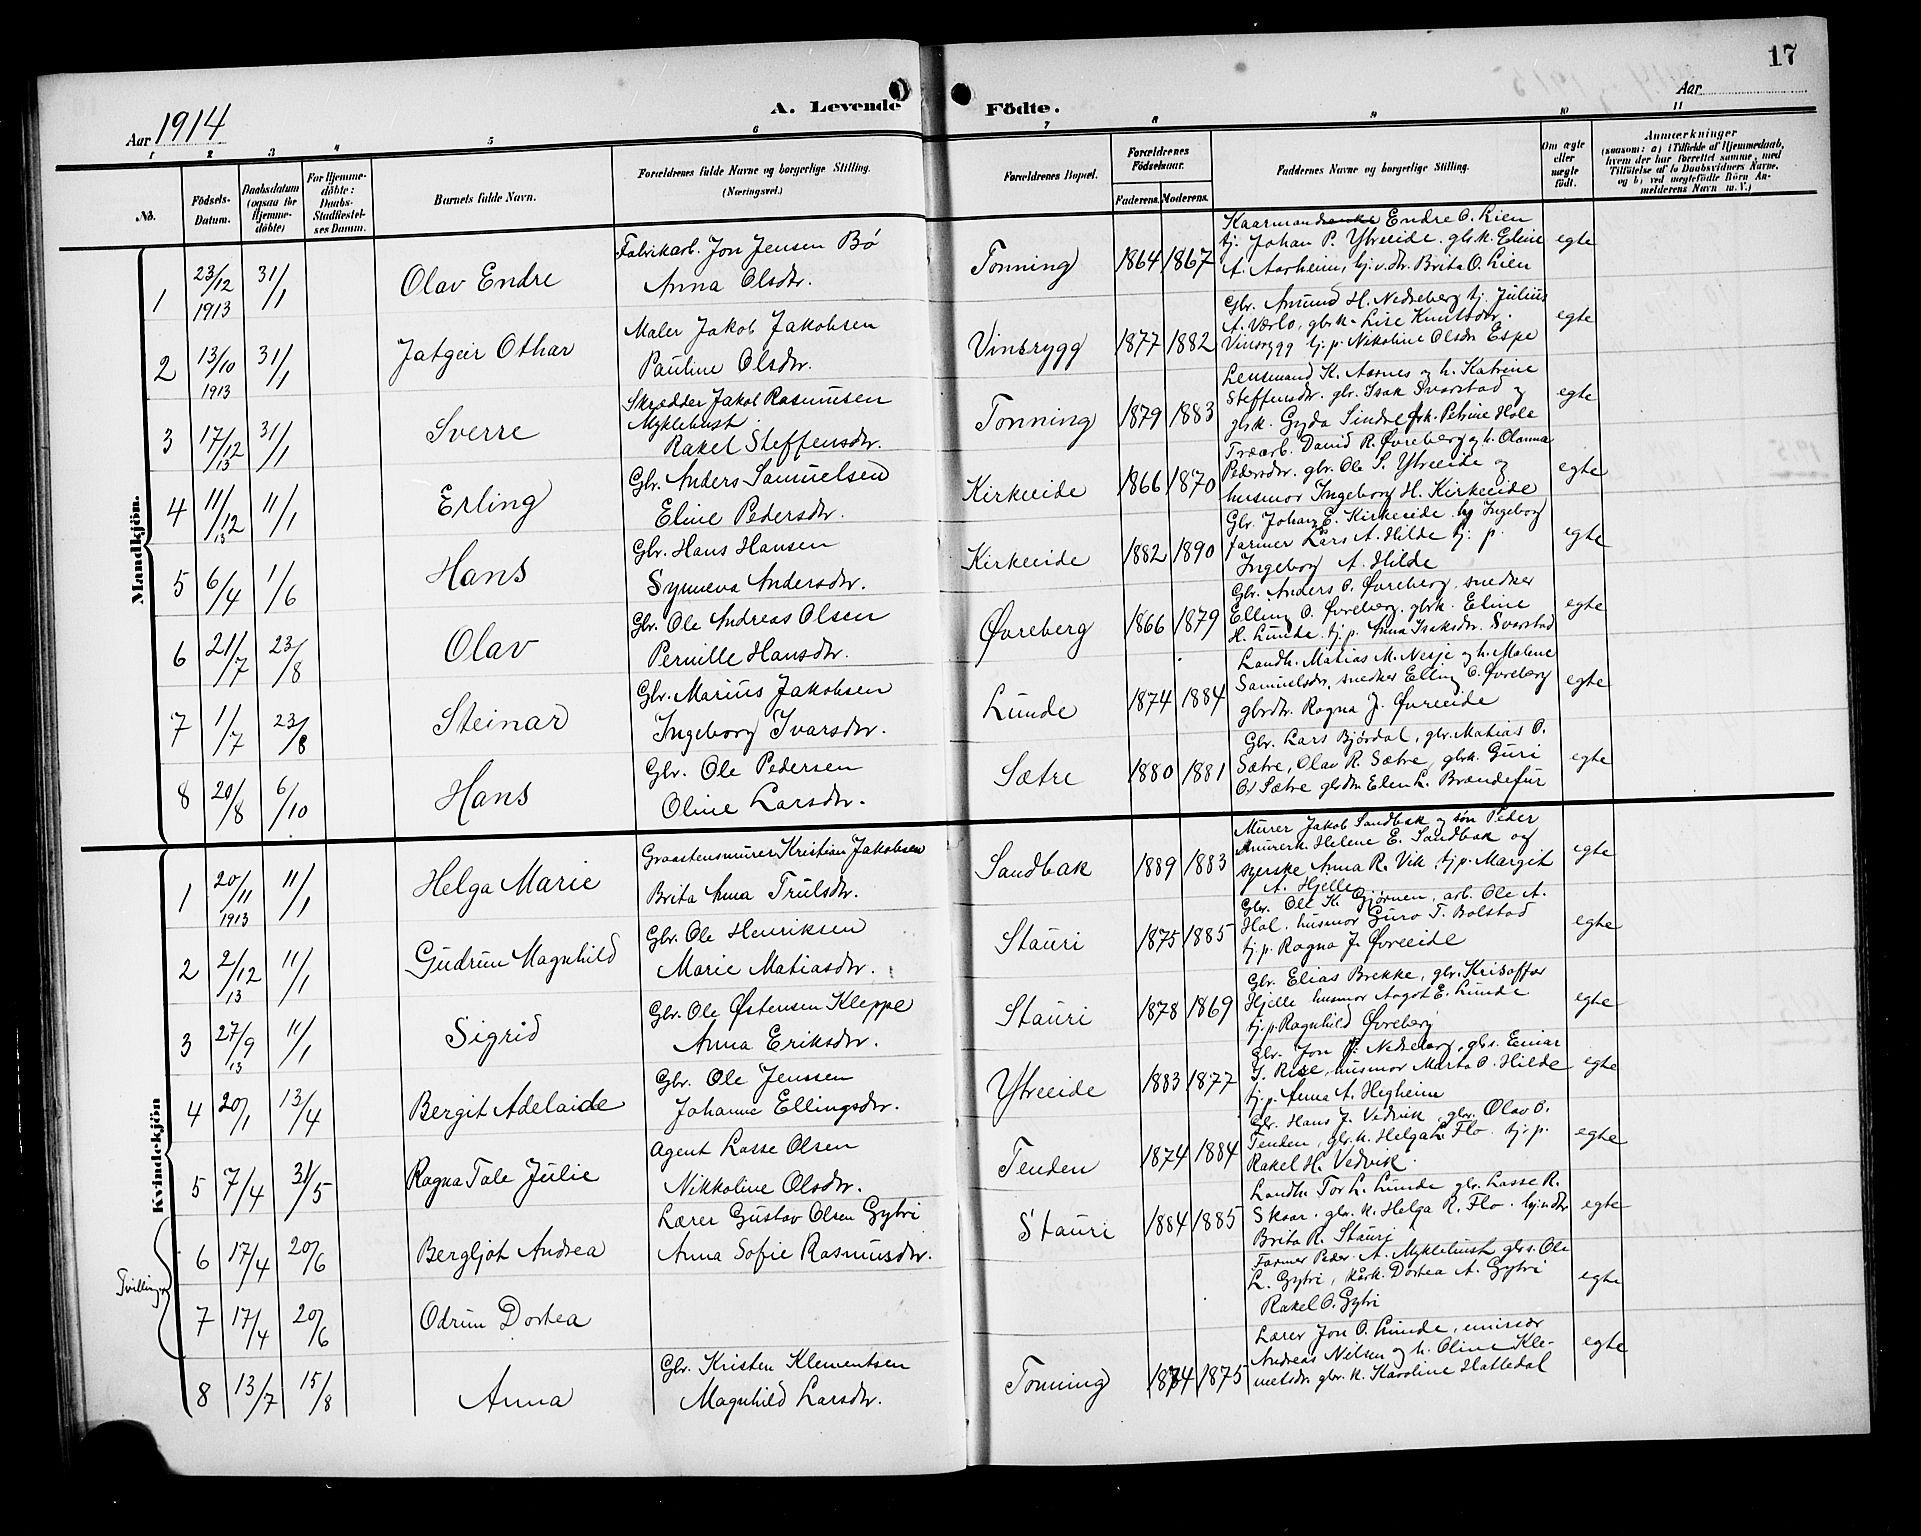 17
Aar 1914
A. Levende Födte.
Aar
1 2 3 4 5 6 7 8 9 10 11
No.
Födsels-Datum.
Daabsdatum (ogsaa for Hjemmedöbte)
For Hjemmedöbte: Daabs-Stadfæstelses Datum.
Barnets fulde Navn.
Forældrenes fulde Navne og borgerlige Stilling. (Næringsvei.)
Forældrenes Bopæl.
Forældrenes Födselsaar.
Faderens. Moderens.
Faddernes Navne og borgerlige Stilling.
Om ægte eller uægte födt.
Anmærkninger
(saasom: a) i Tilfælde af Hjemmedaab,
hvem der har forrettet samme, med
Tilföielse af to Daabsvidners Navne.
og b) ved uægtefödte Börn Anmelderens Navn m. V.)
Mandkjön.
1 23/12 1913 31/1 Olav Endre
Fabrikarb. Jon Jensen Bø
Anna Olsdtr.
Tonning 1864 1867
Kaarmand Endre O. Lien
tj. Johan P. Ytreeide. gbrk. Eline
A. Aarheim, tj.v.dtr. Brita O. Lien
egte
2 13/10 1913 31/1 Jatgeir Othar
Maler Jakob Jakobsen
Pauline Olsdtr.
Vinsrygg 1877 1882
Gbr. Amund H. Nedreberg tj. Julius
A. Værlo, gbrk. Lise Knutsdtr.
Vinsrygg tj.p. Nikoline Olsdtr Espe
egte
3 17/12 13 31/1 Sverre
Skrædder Jakob Rasmusen
Myklebust.
Rakel Steffensdtr.
Tonning 1879 1883
Lensmand K. Aarnes og h. Katrine
Steffensdtr. gbr. Isak Svarstad og
gbrk. Gyda Sindre Petrine Hole
egte
4 11/12 13 11/1 Erling
Gbr. Anders Samuelsen
Eline Pedersdtr.
Kirkeeide 1866 1870
Træarb. David R. Øvreberg og h. Olanna
Pedersdtr. gbr. Ole S. Ytreeide og
husmor Ingeborg H. Kirkeeide
egte
5 6/4 1/6 Hans
Gbr. Hans Hansen
Synneva Andersdtr.
Kirkeeide 1882 1890
Gbr. Johan E. Kirkeeide. og Ingeborg
farmer Lars A. Hilde tj. p.
Ingeborg A. Hilde
egte
6 21/7 23/8 Olav
Gbr. Ole Andreas Olsen
Pernille Hansdtr.
Øvreberg 1866 1879
Gbr. Anders O. Øvreberg, snedker
Elling O. Øvreberg. gbrk. Eline
H. Lunde. tj.p. Anna Isaksdtr. Svarstad
egte
7 1/7 23/8 Steinar
Gbr. Marius Jakobsen
Ingeborg Ivarsdtr.
Lunde 1874 1884
Landh. Matias M. Nesje og h. Malene
Samuelsdtr. snedker Elling O. Øvreberg
gbrdtr. Ragna J. Øvreeide
egte
8 20/8 6/10 Hans
Gbr. Ole Pedersen
Oline Larsdtr.
Sætre 1880 1881
Gbr. Lars Bjørdal, gbr. Matias O.
Sætre, Olav R. Sætre, gbrk. Guri
O. Sætre gbrdtr. Elen L. Brandefur
egte
Kvindekjön
1 20/11 1913 11/1 Helga Marie
Graastensmurer Kristian Jakobsen
Brita Anna Trulsdtr.
Sandbak 1889 1883
Murer Jakob Sandbak og søn Peder
Murerk. Helene E. Sandbak og
syerske Anna R. Vik. tj.p. Margit
A. Hjelle
egte
2 2/12 13 11/1 Gudrun Magnhild
Gbr. Ole Henriksen
Marie Matiasdtr.
Stauri 1875 1885
Gbr. Ole K. Gjørnen, arb. Ole A.
Hol. husmor Guro T. Bolstad
tj.p. Ragna J. Øvreeide
egte
3 27/9 13 11/1 Sigrid
Gbr. Ole Østensen Kleppe
Anna Eriksdtr.
Stauri 1878 1869
Gbr. Elias Brekke, gbr. Krisoffer
Hjelle husmor Aagot E. Lunde
tj.p. Ragnhild Øvreberg
egte
4 20/1 13/4 Bergit Adelaide
Gbr. Ole Jenssen
Johanne Ellingsdtr.
Ytreeide 1883 1877
Gbr. Jon P. Nedreberg, gbs. Einar
J. Rise, husmor Marta O. Hilde
tj.p. Anna A. Hegheim
egte
5 7/4 31/5 Ragna Tale Julie
Agent Lasse Olsen
Nikkoline Olsdtr.
Tenden 1874 1884
Gbr. Hans J. Vedvik, gbr. Olav O.
Tenden, gbr.k. Helga L. Flo. tj.p.
Rakel H. Vedvik.
egte
Tvillinger
6 17/4 20/6 Bergljot Andrea
Lærer Gustav Olsen Gytri
Anna Sofie Rasmusdtr.
Stauri 1884 1885
Landh. Tor L. Lunde gbr. Lasse R.
Skaar. gbr. k. Helga R. Flo.
Brita R. Stauri
egte
7 17/4 20/6 Odrun Dortea
Farmer Peder A. Myklebust gbrs. Ole
L. Gytri, kårk. Dortea A. Gytri
Rakel O. Gytri
egte
8 13/7 15/8 Anna
Gbr. Kristen Klementsen
Magnhild Larsdtr.
Tonning 1874 1875
Lærer Jon O. Lunde, emisær
Andreas Nilsen og h. Oline Kle-
metsdtr. gbr. k. Karoline Hattedal
egte